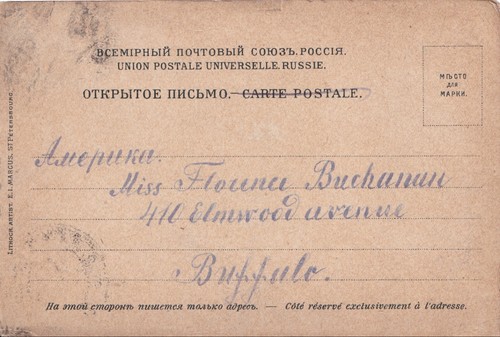 ВСЕМІРНЫЙ ПОЧТОВЫЙ СОЮЗЪ. РОССІЯ.
UNION POSTALE UNIVERSELLE. RUSSIE.
ОТКРЫТОЕ ПИСЬМО. — CARTE POSTALE.
МѢСТО
ДЛЯ
МАРКИ.
Америка.
Miss Florence Buchanan
410 Elmwood avenue
Buffalo.
На этой сторонѣ пишется только адресъ. — Côté réservé exclusivement à l'adresse.
LITHOGR. ARTIST. E. I. MARCUS, ST PETERSBOURG.